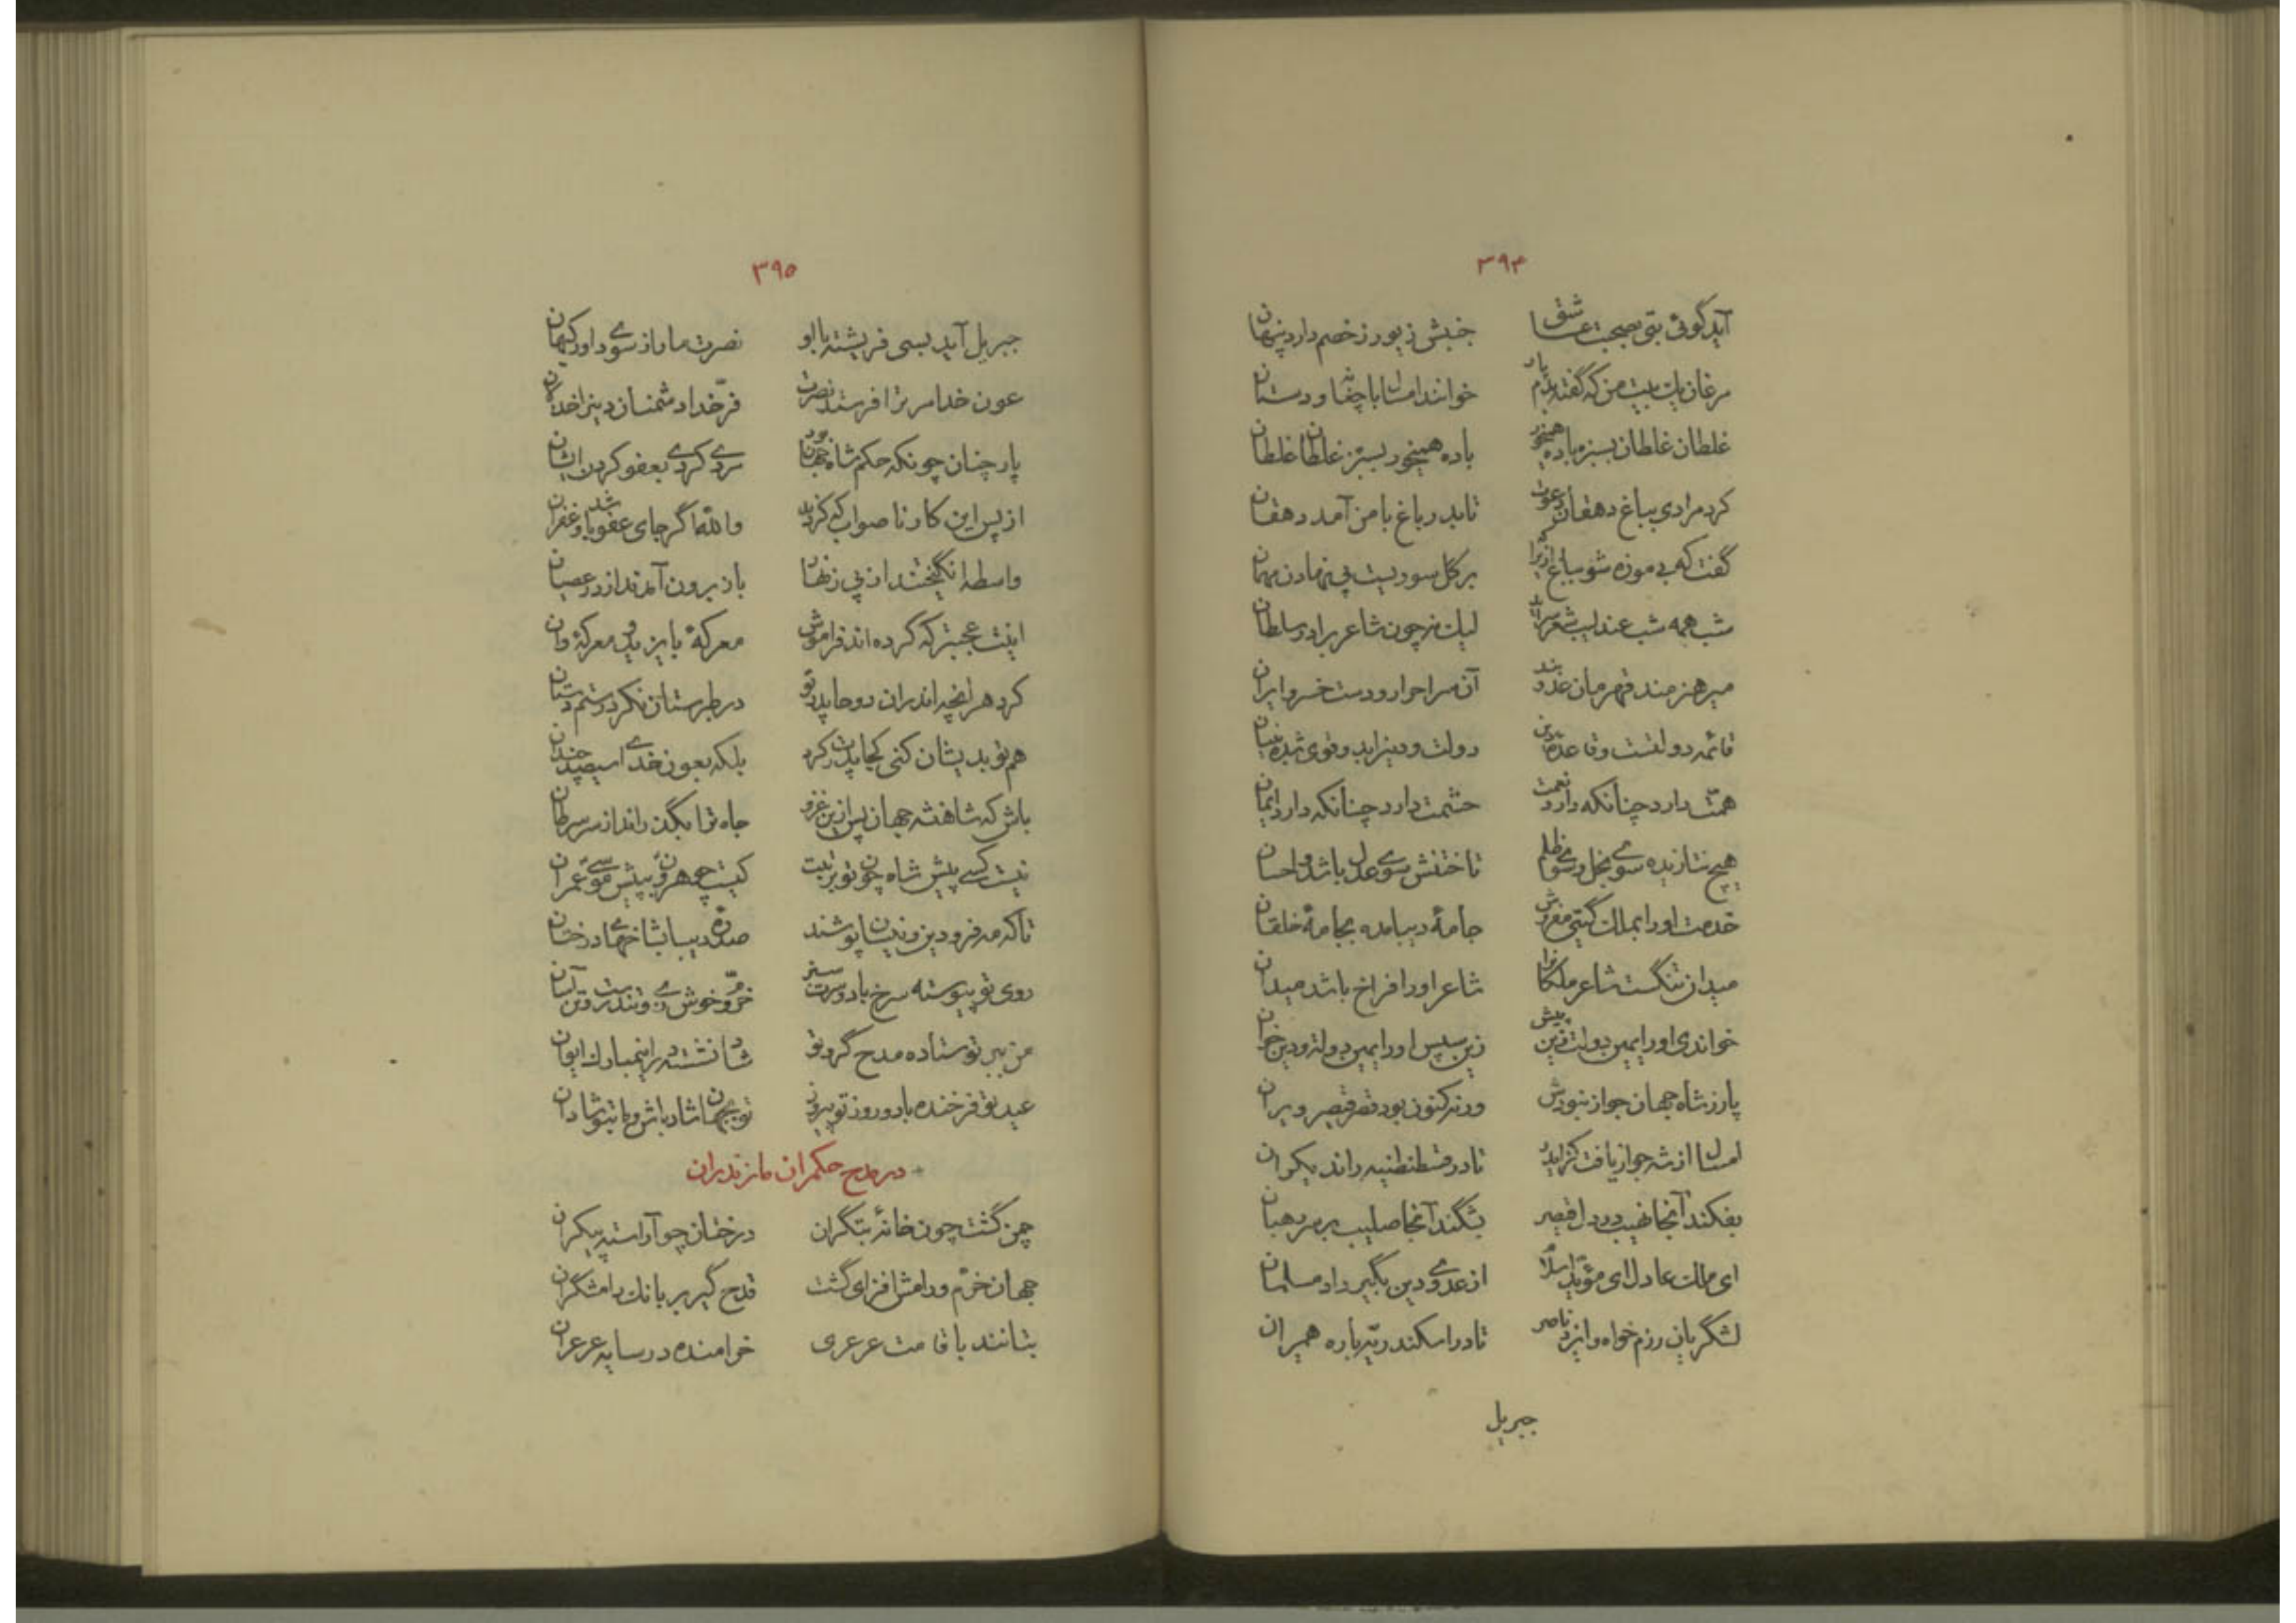 ۳۹۴
آید گوئی بتی بصحبت عاشق جنبش زیور ز خصم دارد پنهان
مرغان یک بیت من که گفته‌ام پار خوانند امسال با چغانه و دستان
غلطان غلطان بسبزه باده همیخور باده همیخور بسبزه غلطان غلطان
کرد مرا دی بباغ دهقان دعوت تا بدر باغ با من آمد دهقان
گفت که بی موزه شو بباغ ازیرا بر گل سوریست پی نهادن مهمان
شب همه شب عندلیب شعر سراید لیک نه چون شاعر برادر سلطان
میر هنرمند قهرمان عدو بند آن سرا احرار و دست خسرو ایران
قائمه دولتست و قاعده دین دولت و دین زاید و قوی شده بنیان
همت دارد چنانکه دارد نعمت حشمت دارد چنانکه دارد ایمان
هیچ نتازیده سوی بخل و سوی ظلم تاختنش سوی عدل باشد و احسان
خدمت او را بملک گیتی مفروش جامهٔ دیبا مده بجامهٔ خلقان
میدان تنگست شاعر ملکانرا شاعر او را فراخ باشد میدان
خواندی او را یمین دولت زین پیش زین سپس او را یمین دولت و دین خوان
پار ز شاه جهان جواز نبودش ورنه کنون بود قصر قیصر ویران
امسال از شه جواز یافت کز ایدر تا در قسطنطنیه راند یکران
بفکند آنجا نهیب در دل قیصر بشکند آنجا صلیب بر سر رهبان
ای ملک عادل ای مؤید اسلام از عدوی دین بگیر داد مسلمان
لشگر یان رزم خواه و ایزد ناصر تا در اسکندریه باره همیران
جبریل
۳۹۵
جبریل آید بسی فریشته با او نصرت ما را ز سوی داور کیهان
عون خدا مر ترا فرستد نصرت فر خدا دشمنان دین را خذلان
پار چنان چونکه حکم شاه جهان بود سردی کردی بعفو کردن ایشان
از پس این کار ناصواب که کردند والله اگر جای عفو باشد و غفران
واسطه انگیختند از پی زنهار باز برون آمدند از در عصیان
اینت عجبتر که کرده‌اند فراموش معرکهٔ بایزید و معرکهٔ وان
کرد هر آنچه اندران دو جا پدر تو در طبرستان نکرد رستم دستان
هم تو بدیشان کنی کجا پدرت کرد بلکه بعون خدای سیصد چندان
باش که شاهنشه جهان پس ازین غزو جاه ترا بگذراند از سر سرطان
نیست کسی پیش شاه چون تو برتبت کیست چو هرون بپیش موسی عمران
تا که مه فرودین و نیسان پوشند صدره دیبا بشاخهای درختان
روی تو پیوسته سرخ باد و سرت سبز خرم و خوش زی و تندرست و تن آسان
من ببر تو ستاده مدح گر تو شاد نشسته در این مبارک ایوان
عید تو فرخنده باد و روز تو پیروز تو بجهان شاد باش و ما بتو شادان
در مدح حکمران مازندران
چمن گشت چون خانهٔ بتگران درختان چو آراسته پیکران
جهان خرم و رامش افزای گشت قدح گیر بر بانگ رامشگران
بتانند با قامت عرعری خرامنده در سایه عرعران